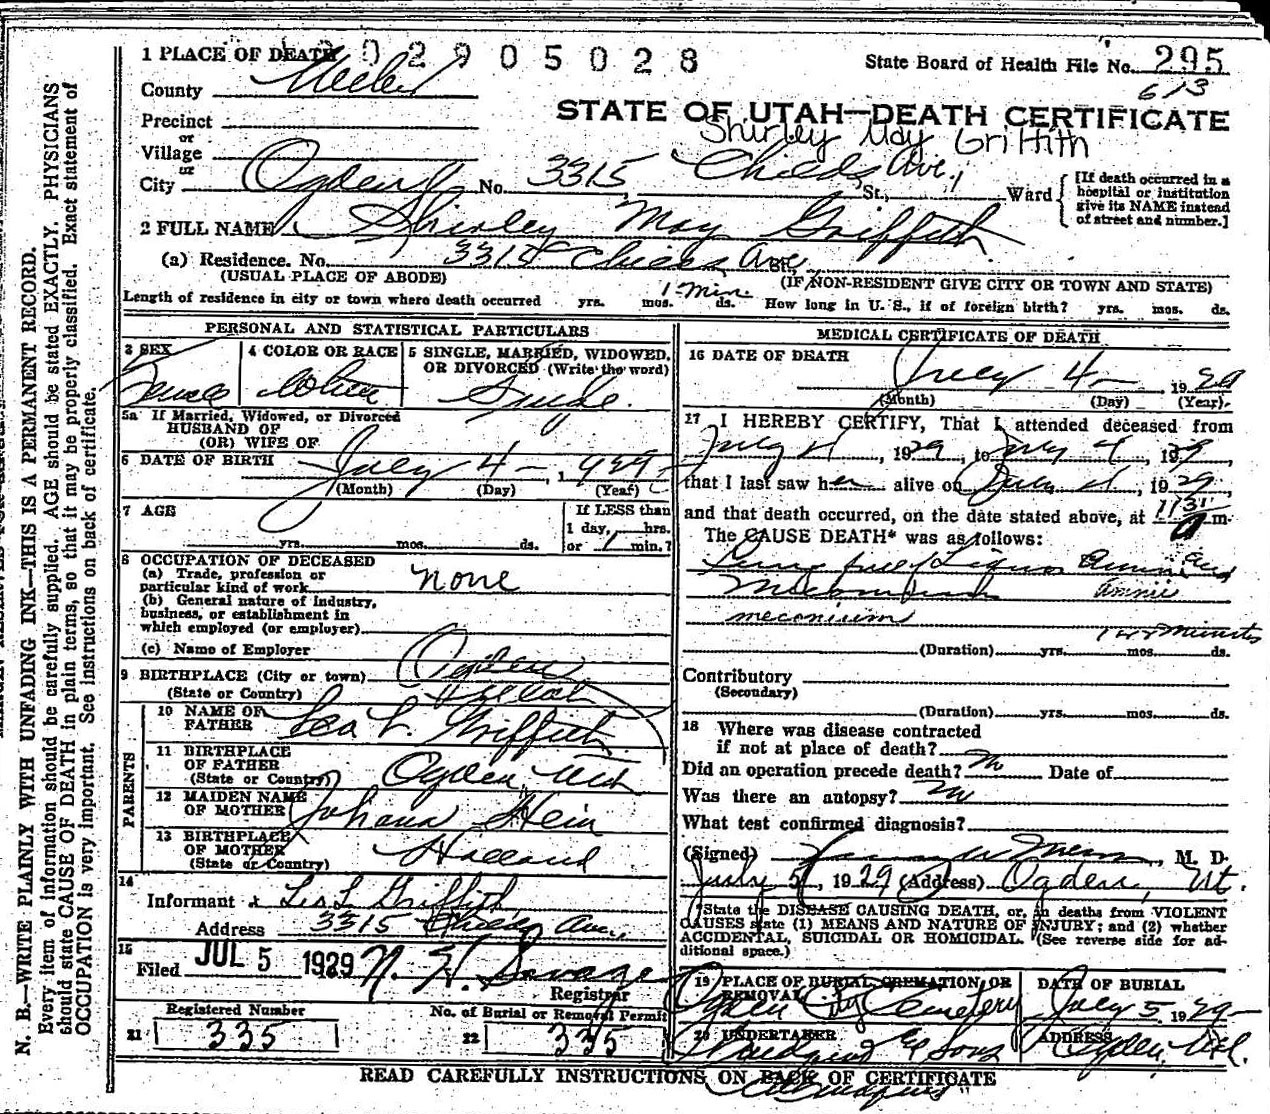 1 PLACE OF DEATH 2 9 0 5 0 2 8
State Board of Health File No. 295
613
County Weber
STATE OF UTAH—DEATH CERTIFICATE
Shirley May Griffith
Precinct
or
Village
or
City Ogden No. 3315 Childs Ave. St., Ward
[If death occurred in a hospital or institution give its NAME instead of street and number.]
2 FULL NAME Shirley May Griffith
(a) Residence. No. 3315 Childs Ave St.,
(USUAL PLACE OF ABODE) (IF NON-RESIDENT GIVE CITY OR TOWN AND STATE)
Length of residence in city or town where death occurred yrs. mos. 1 Min. ds. How long in U. S., if of foreign birth? yrs. mos. ds.
PERSONAL AND STATISTICAL PARTICULARS
3 SEX
Female
4 COLOR OR RACE
White
5 SINGLE, MARRIED, WIDOWED, OR DIVORCED (Write the word)
Single.
5a If Married, Widowed, or Divorced
HUSBAND OF
(OR) WIFE OF
6 DATE OF BIRTH July 4 - , 1929
(Month) (Day) (Year)
7 AGE
yrs. mos. ds.
If LESS than
1 day, hrs.
or 1 min.?
8 OCCUPATION OF DECEASED
(a) Trade, profession or
particular kind of work none
(b) General nature of industry,
business, or establishment in
which employed (or employer)
(c) Name of Employer
9 BIRTHPLACE (City or town) Ogden
(State or Country) Utah
PARENTS
10 NAME OF FATHER L. Griffith
11 BIRTHPLACE OF FATHER (State or Country) Ogden Utah
12 MAIDEN NAME OF MOTHER Johana Hein
13 BIRTHPLACE OF MOTHER (State or Country) Holland
14
Informant L. Griffith
Address 3315 Childs Ave.
15
Filed JUL 5 1929 N. H. Savage
Registrar
Registered Number
21 335
No. of Burial or Removal Permit
22 335
MEDICAL CERTIFICATE OF DEATH
16 DATE OF DEATH
July 4 - 1929
(Month) (Day) (Year)
17 I HEREBY CERTIFY, That I attended deceased from
July 4, 1929, to July 4, 1929
that I last saw her alive on July 4, 1929
and that death occurred, on the date stated above, at 1131 a m.
The CAUSE DEATH* was as follows:
Lungs full Liquor amnii and
amnii
meconium
minutes
(Duration) yrs. mos. ds.
Contributory
(Secondary)
(Duration) yrs. mos. ds.
18 Where was disease contracted
if not at place of death?
Did an operation precede death? No Date of
Was there an autopsy? No
What test confirmed diagnosis?
(Signed) , M. D.
July 5, 1929 (Address) Ogden, Ut.
*State the DISEASE CAUSING DEATH, or, in deaths from VIOLENT
CAUSES state (1) MEANS AND NATURE OF INJURY; and (2) whether
ACCIDENTAL, SUICIDAL OR HOMICIDAL. (See reverse side for additional space.)
19 PLACE OF BURIAL, CREMATION OR REMOVAL
Ogden City Cemetery
DATE OF BURIAL
July 5 1929
20 UNDERTAKER
& Sons
ADDRESS
Ogden, Utah.
READ CAREFULLY INSTRUCTIONS ON BACK OF CERTIFICATE
N. B.—WRITE PLAINLY WITH UNFADING INK—THIS IS A PERMANENT RECORD.
Every item of information should be carefully supplied. AGE should be stated EXACTLY. PHYSICIANS
should state CAUSE OF DEATH in plain terms, so that it may be properly classified. Exact statement of
OCCUPATION is very important. See instructions on back of certificate.